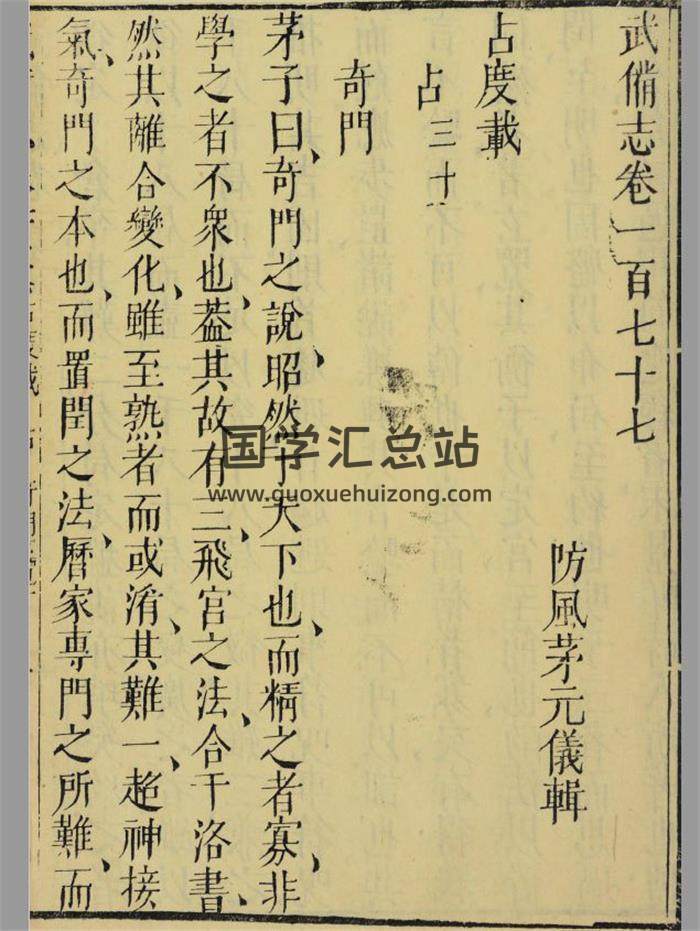 武備志卷一百七十七
防風茅元儀輯
占度載
占三十
奇門
茅子曰、奇門之說、昭然于天下也、而精之者寡、非
學之者不衆也、葢其故有三、飛宮之法、合于洛書、
然其離合變化、雖至熟者而或淆、其難一、超神接
氣、奇門之本也、而置閏之法、曆家專門之所難、而
国学汇总站
www.guoxuehuizong.com